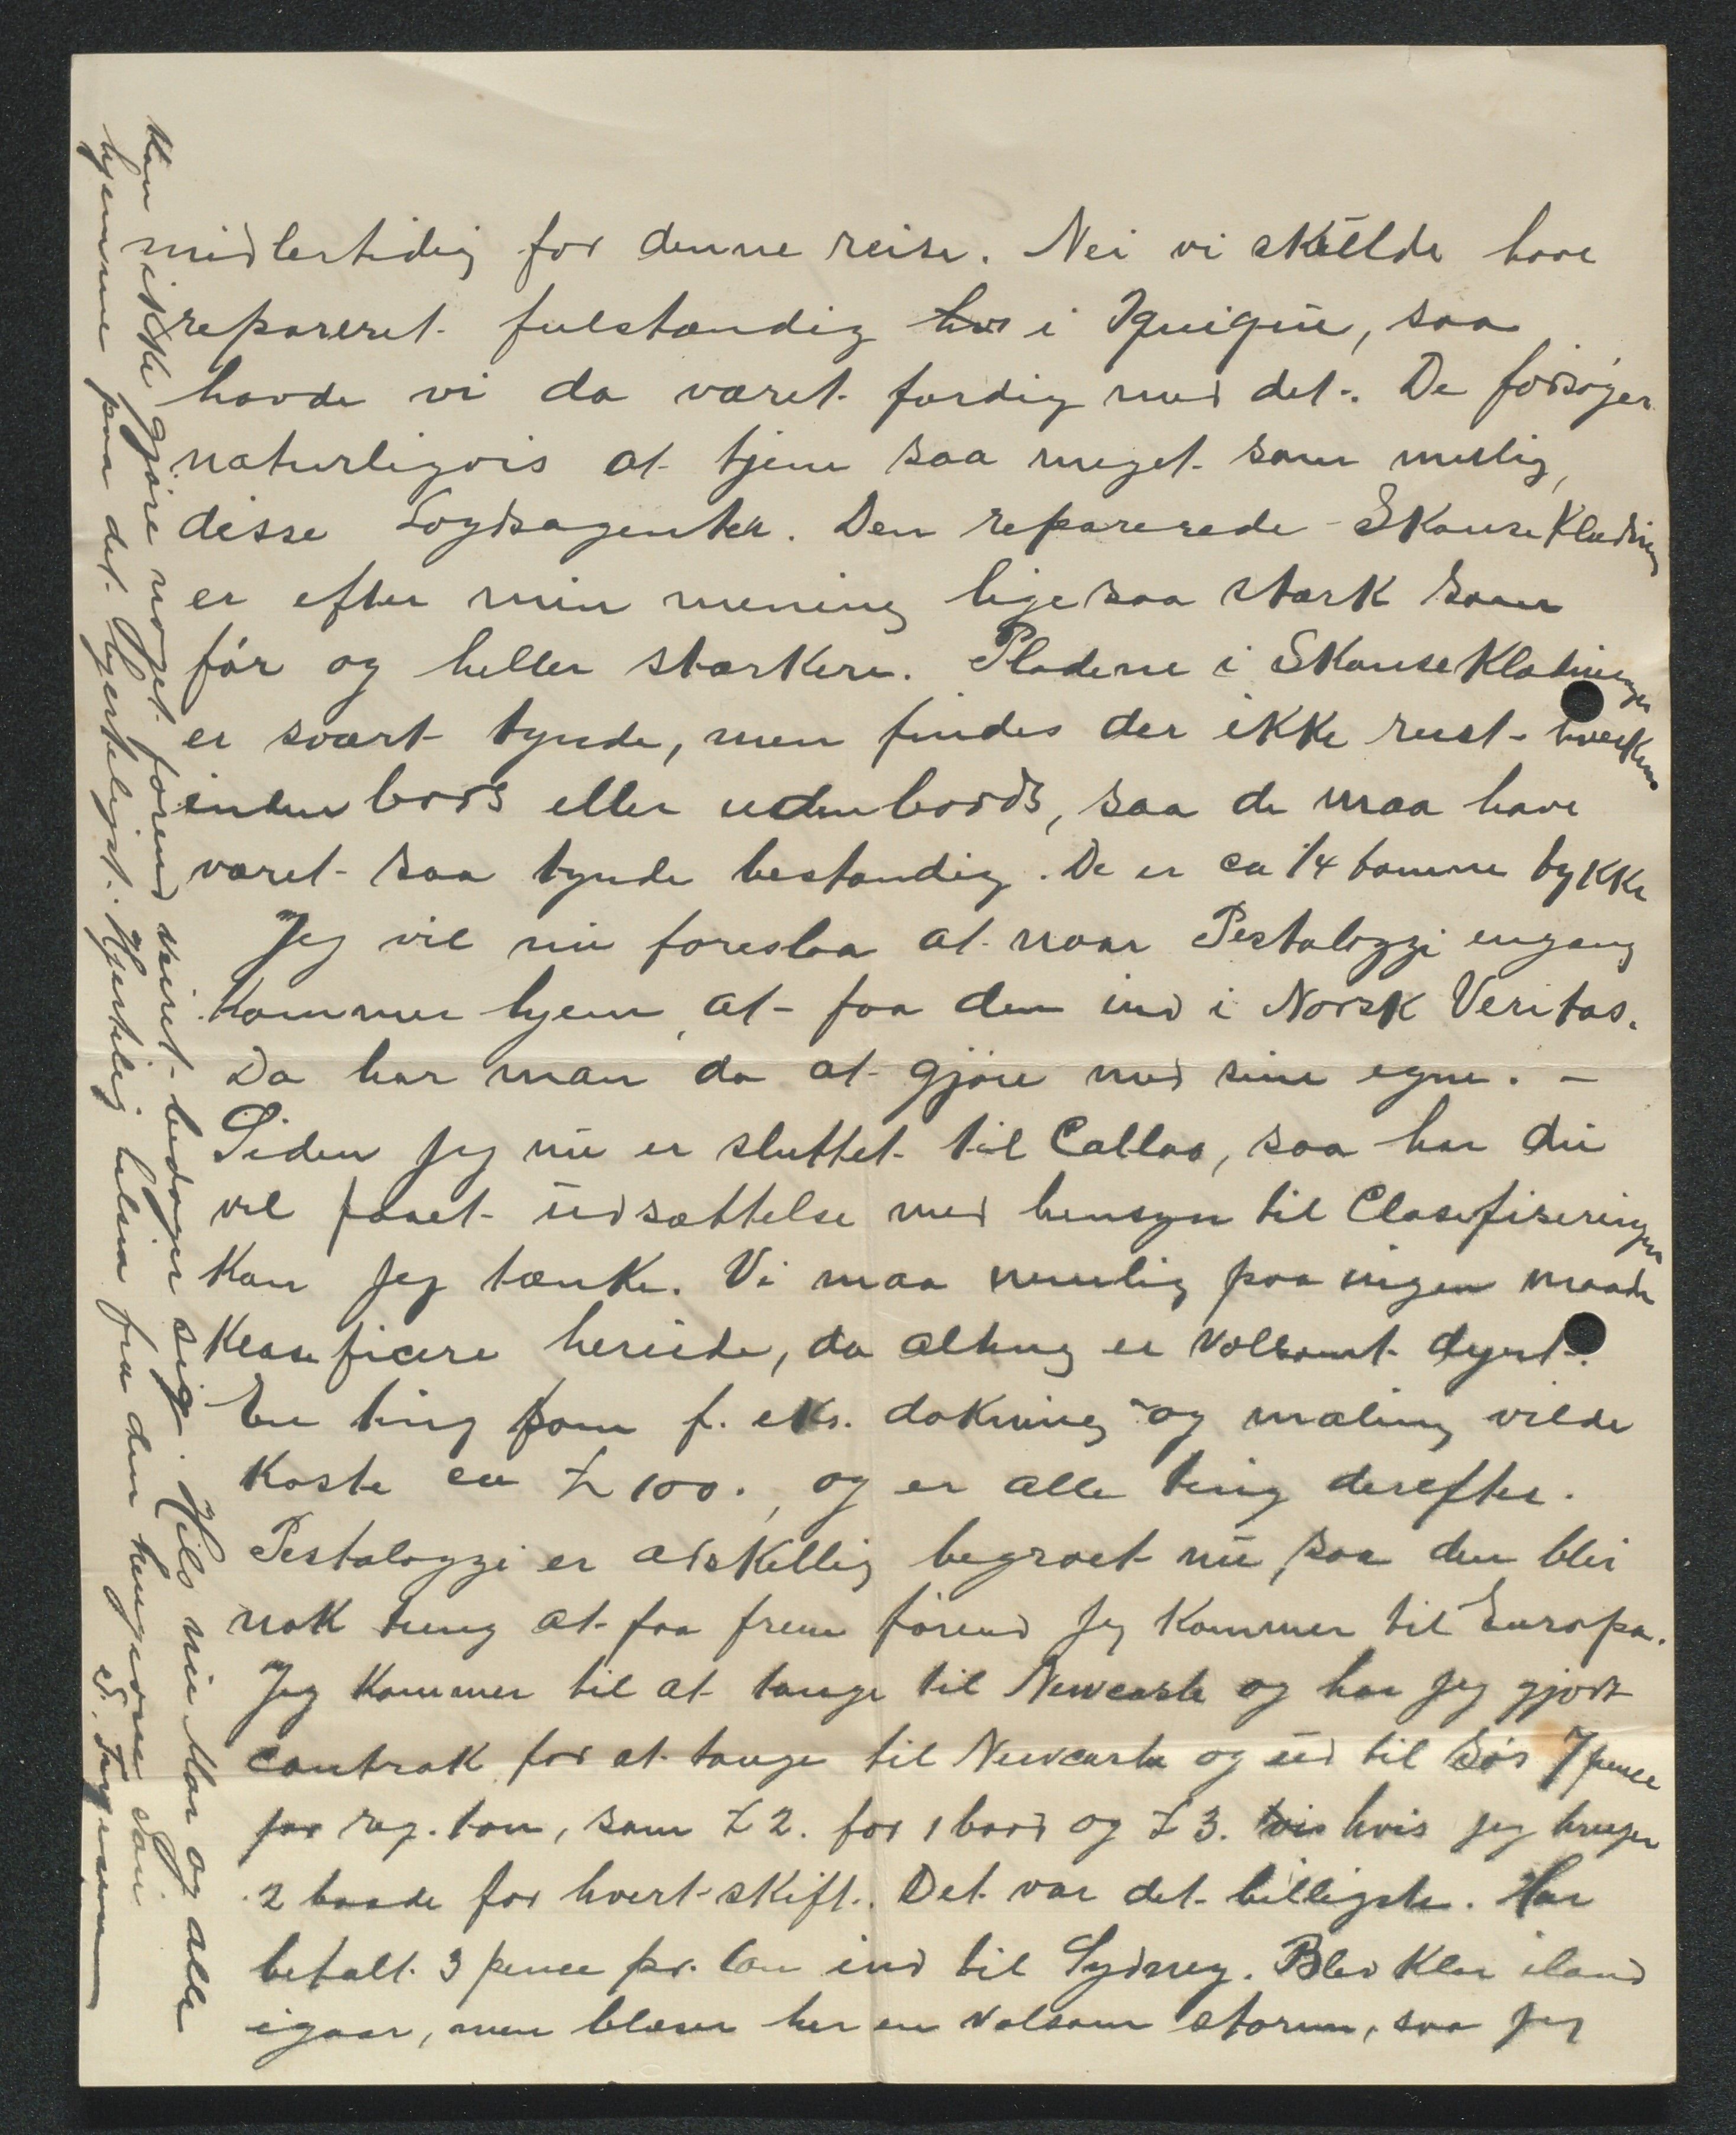 midlertidig for denne reise. Nei vi skulde have
repareret fulstændig i Iquique, saa
havde vi da været færdig med det. De forsøger
naturligvis at tjene saa meget som mulig,
disse Loydsagenter. Den reparerede Skanseklædning
er efter min mening ligesaa stærk som
før og heller stærkere. Pladene i Skanseklædningen
er svært tynde, men findes der ikke rust hverken
indenbors eller udenbords, saa de maa have
været saa tynde bestandig. De er ca 1/4 tomme tykke
Jeg vil nu foreslaa at naar Pestalozzi engang
kommer hjem, at faa den ind i Norsk Veritas.
Da har man da at gjøre med sine egne. -
Siden jeg nu er sluttet til Callao, saa har du
vel faaet udsættelse med hensyn til Clasifiseringen
kan jeg tænke. Vi maa nemlig paa ingen maade
klasificere herude, da alting er volsomt dyrt.
En ting som f. eks. dokning og maling vilde
koste ca £ 100., og er alle ting derefter.
Pestalozzi er adskillig begroet nu, saa den blir
nok tung at faa frem førend jeg kommer til Europa.
Jeg kommer til at tauge til Newcastle og har jeg gjort
contrak for at tauge til Newcastle og ud til Søs 7 pence
par reg. ton, sam £ 2. for 1 baad og £ 3. hvis jeg bruger
2 baade for hvert skift. Det var det billigste. Har
betalt 3 pence pr. ton ind til Sydney. Blev klar iland
igaar, men blæser her en volsom storm, saa jeg
kan ikke gjøre noget førend veiret bedager sig. Hils nu Mor og alle
hjemme paa det hjerteligst. Hjertelig hilsen fra din hengivne Søn